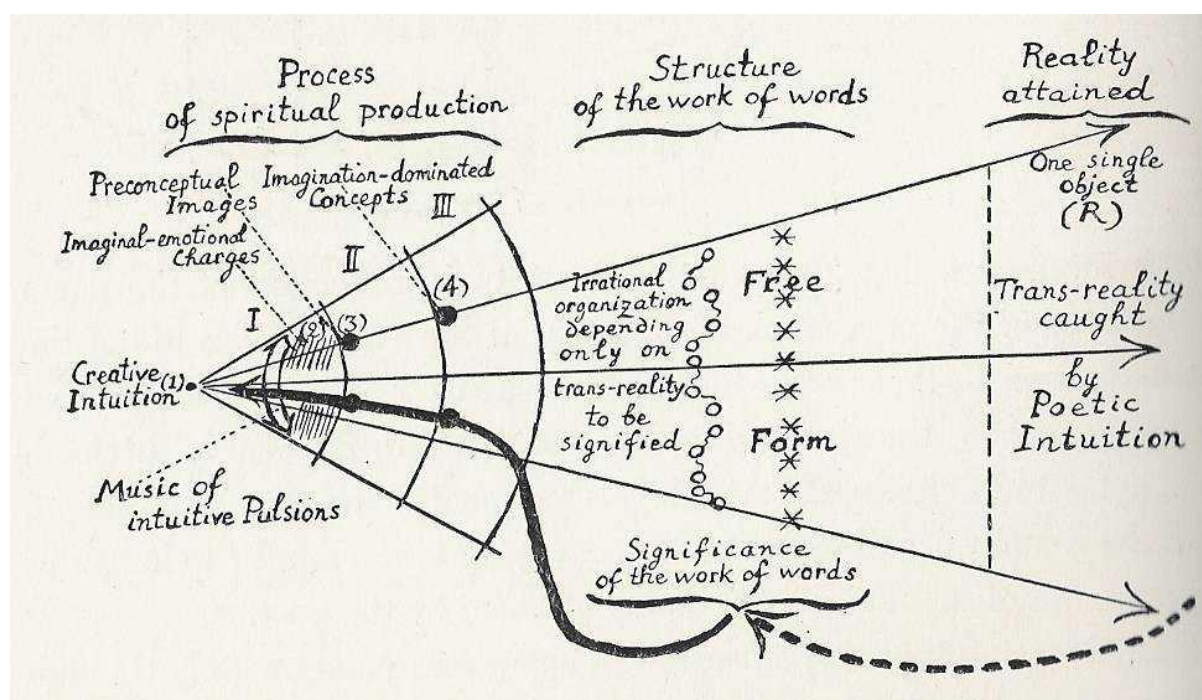 Process
of spiritual production
Structure
of the work of words
Reality
attained
Preconceptual
Images
Imagination-dominated
Concepts
Imaginal-emotional
Charges
I
II
III
(2)
(3)
(4)
Creative
Intuition
(1)
Music of
intuitive Pulsions
Irrational
organization
depending
only on
trans-reality
to be
signified
Free
Form
One single
object
(R)
Trans-reality
caught
by
Poetic
Intuition
Significance
of the work of words